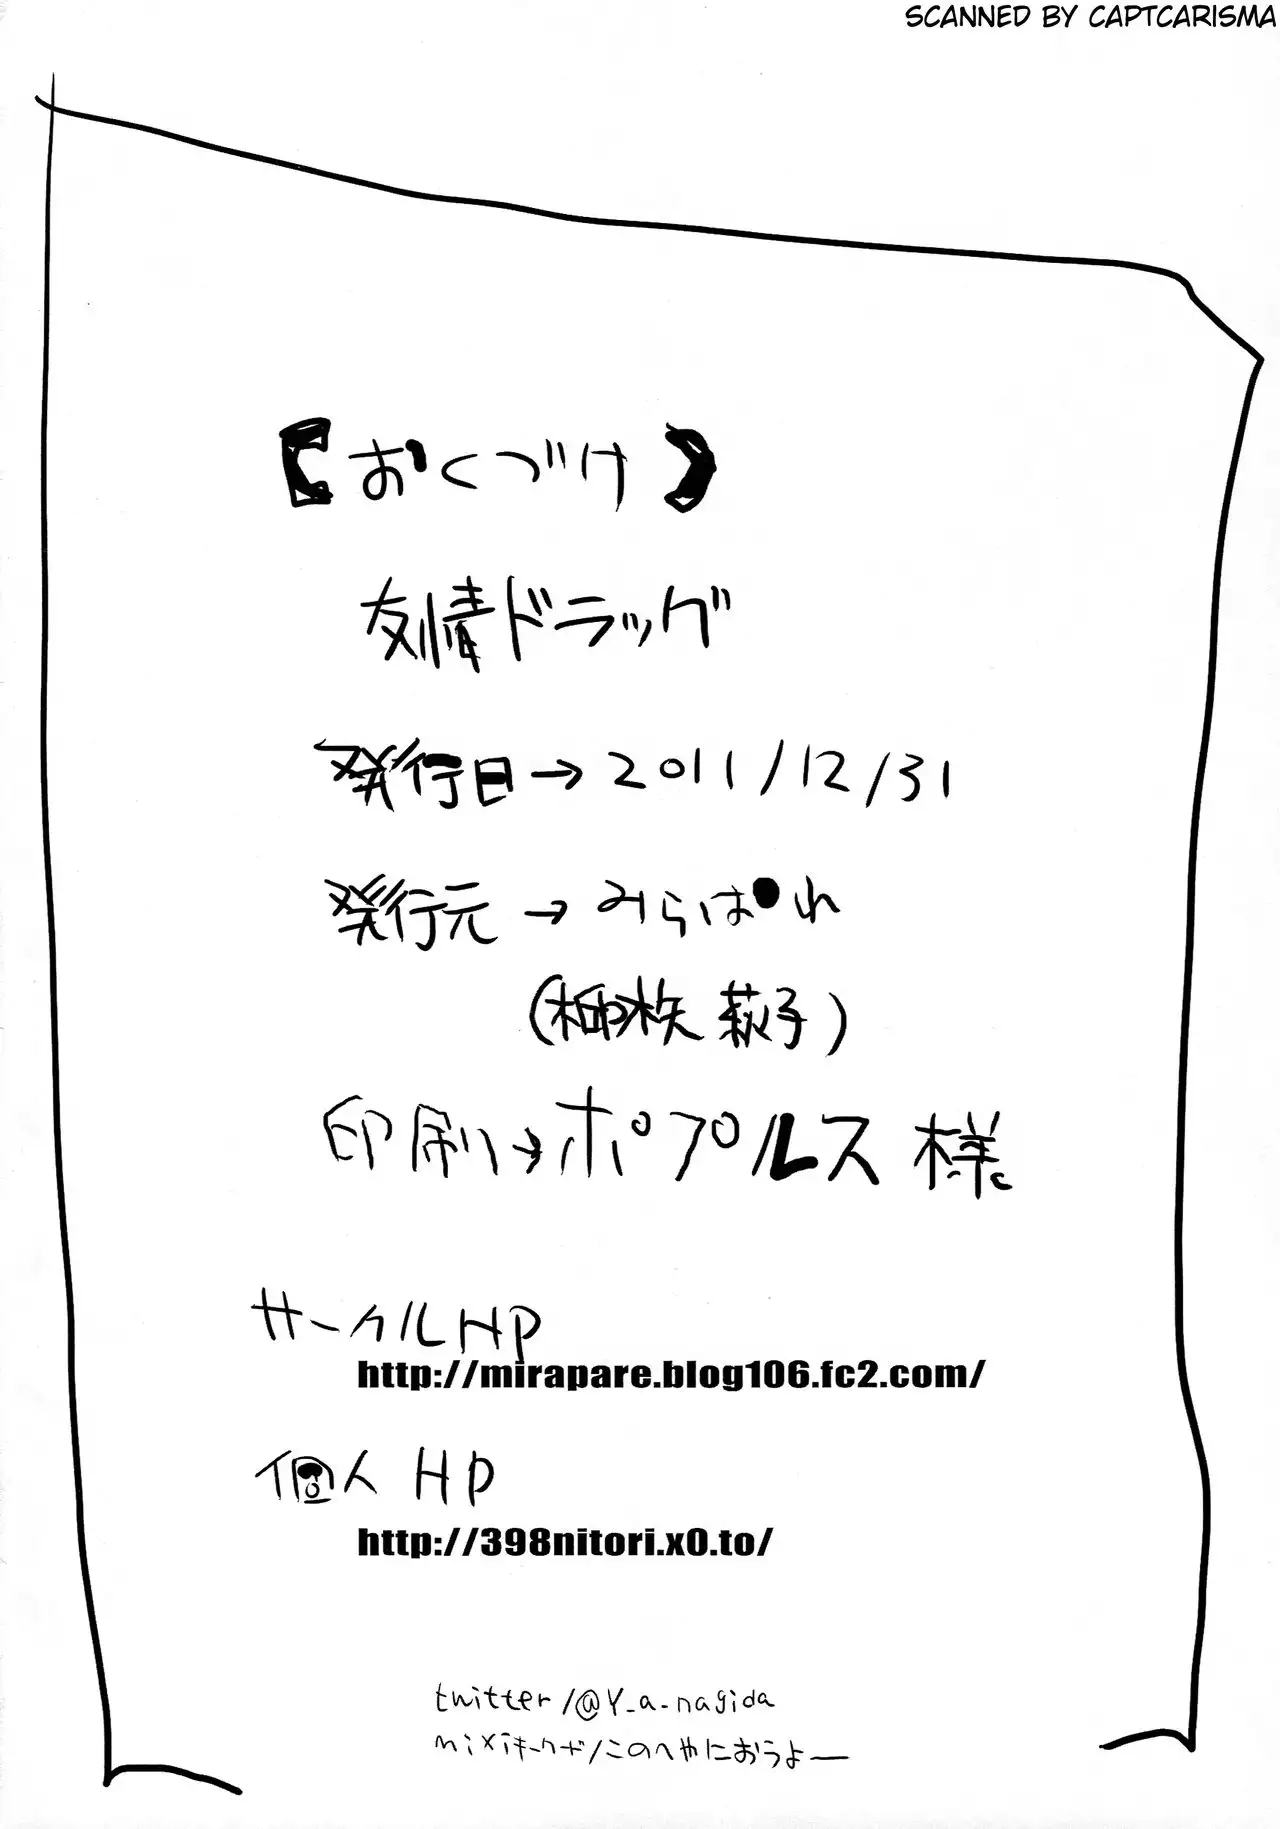 SCANNED BY CAPTCARISMA
【おくづけ】
友情ドラッグ
発行日→2011/12/31
発行元→みらぱれ
萩子)
印刷→ポプルス様
サークルHP
http://mirapare.blog106.fc2.com/
個人HP
http://398nitori.x0.to/
twitter/@Y_a_nagida
mixiキーワード/このへやにおうよー